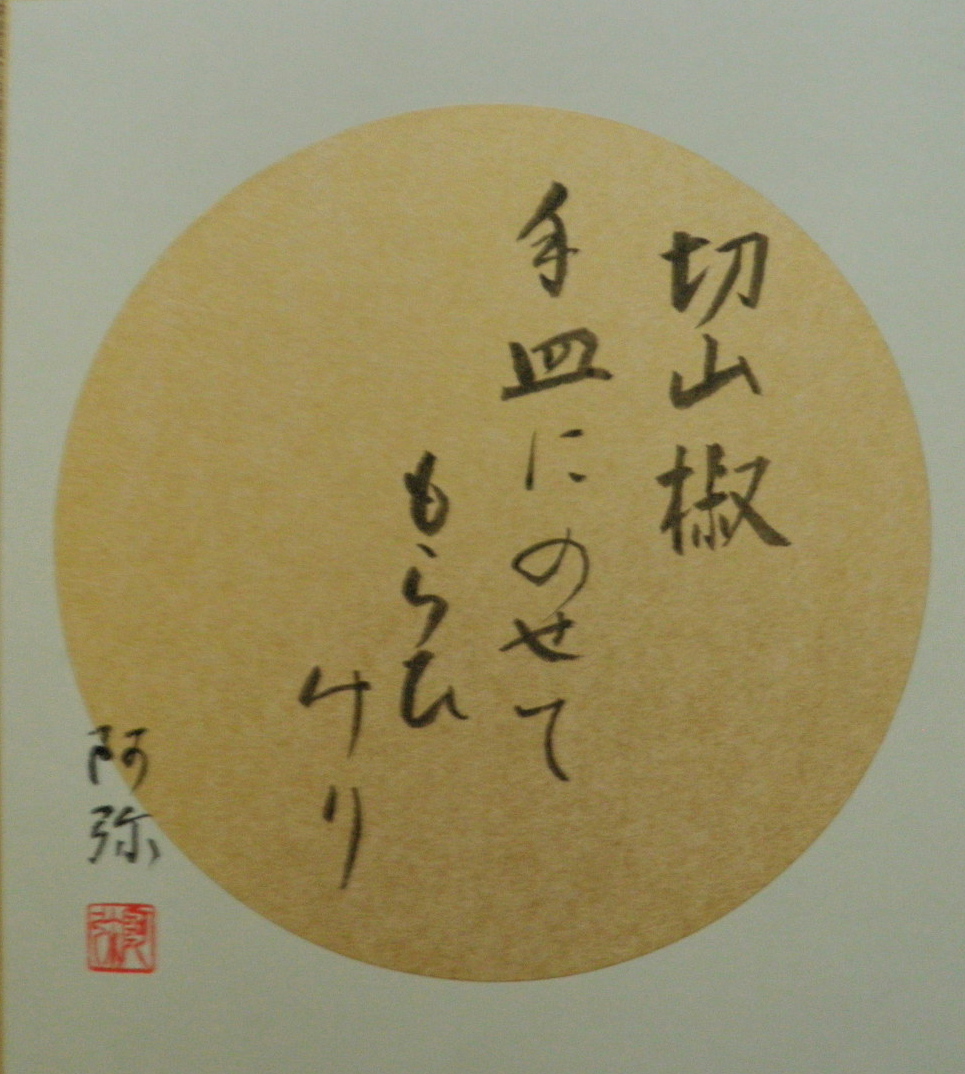 切山椒
手皿にのせて
もらひ
けり
阿弥